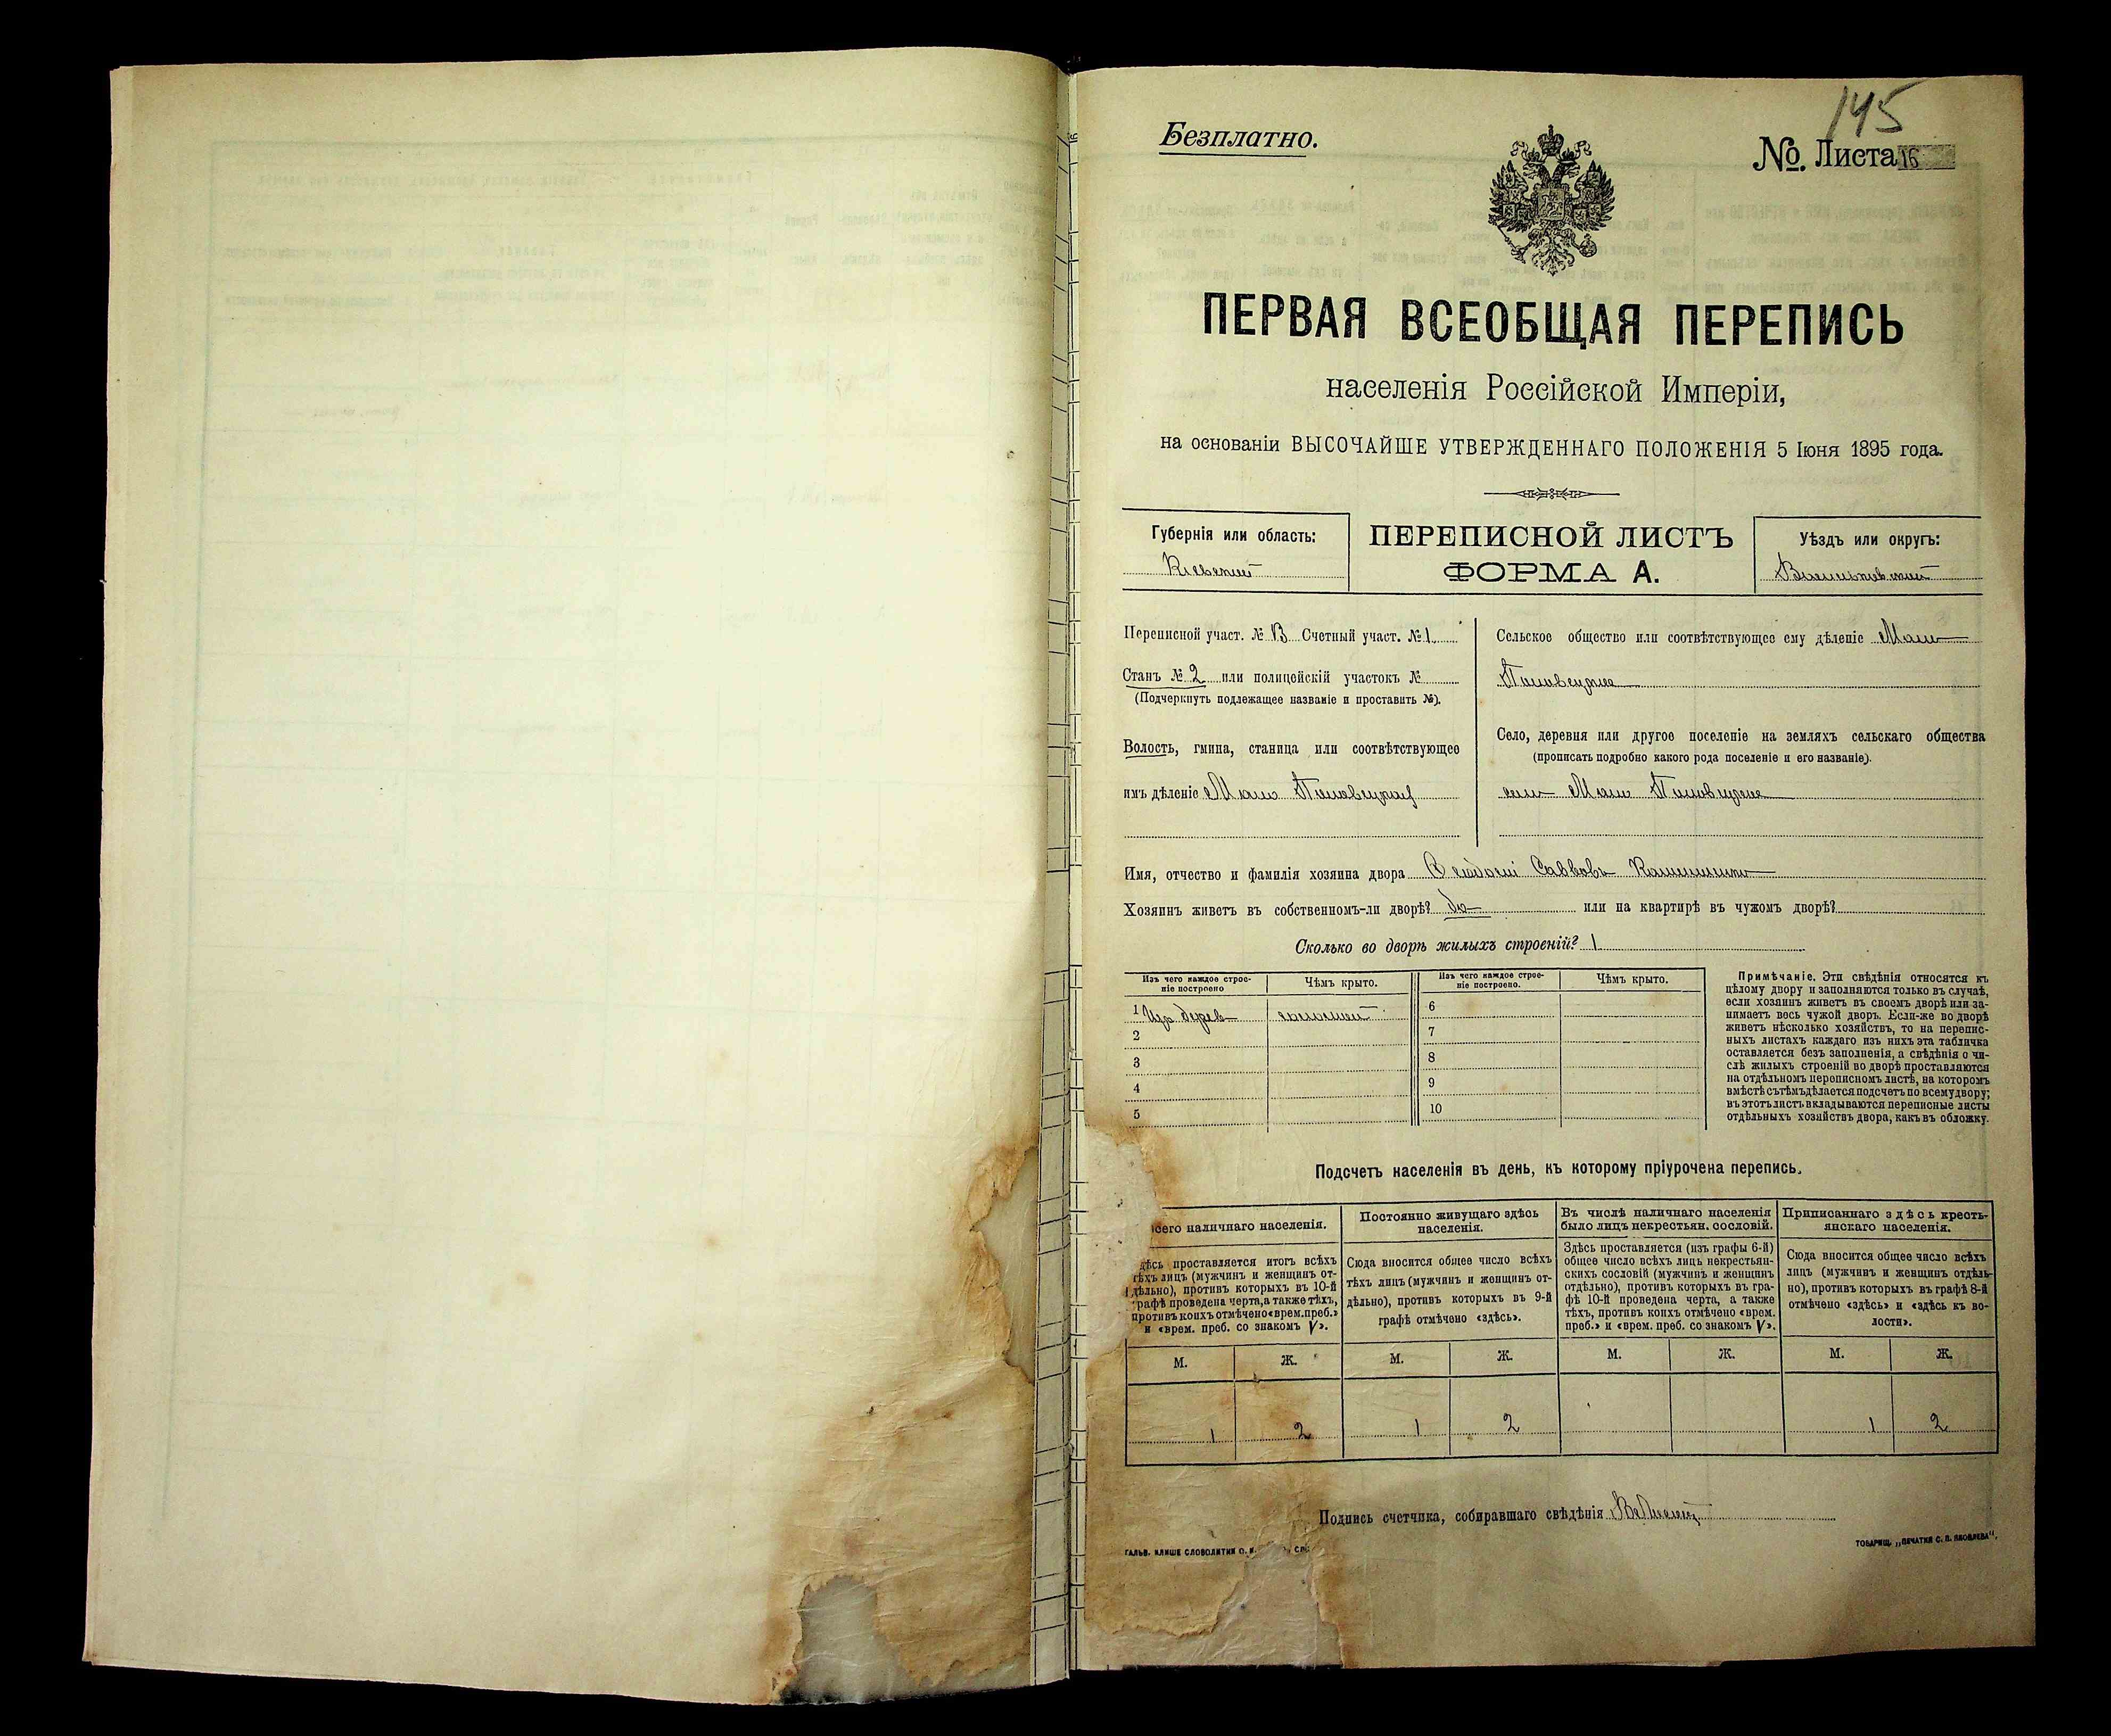 145
Безплатно.
№ Листа 16
ПЕРВАЯ ВСЕОБЩАЯ ПЕРЕПИСЬ
населенія Россійской Имперіи,
на основаніи ВЫСОЧАЙШЕ УТВЕРЖДЕННАГО ПОЛОЖЕНІЯ 5 Іюня 1895 года.
Губернія или область:
Кіевской
ПЕРЕПИСНОЙ ЛИСТЪ
ФОРМА А.
Уѣздъ или округъ:
Васильковскій
Переписной участ. № Счетный участ. № 1
Станъ № 2 или полицейскій участокъ №
(Подчеркнуть подлежащее названіе и проставить №).
Волость, гмина, станица или соотвѣтствующее
имъ дѣленіе Мало Половецкая
Сельское общество или соотвѣтствующее ему дѣленіе Мало
Половецкое
Село, деревня или другое поселеніе на земляхъ сельскаго общества
(прописать подробно какого рода поселеніе и его названіе).
село Мало Половецкое
Имя, отчество и фамилія хозяина двора Ѳеодосій Саввовъ
Хозяинъ живетъ въ собственномъ-ли дворѣ? да или на квартирѣ въ чужомъ дворѣ?
Сколько во дворѣ жилыхъ строеній? 1
Изъ чего каждое строе-
ніе построено
Чѣмъ крыто.
Изъ чего каждое строе-
ніе построено.
Чѣмъ крыто.
1 Изъ дерев соломой
2
3
4
5
6
7
8
9
10
Примѣчаніе. Эти свѣдѣнія относятся къ
цѣлому двору и заполняются только въ случаѣ,
если хозяинъ живетъ въ своемъ дворѣ или за-
нимаетъ весь чужой дворъ. Если-же во дворѣ
живетъ нѣсколько хозяйствъ, то на перепис-
ныхъ листахъ каждаго изъ нихъ эта табличка
оставляется безъ заполненія, а свѣдѣнія о чи-
слѣ жилыхъ строеній во дворѣ проставляются
на отдѣльномъ переписномъ листѣ, на которомъ
вмѣстѣ съ тѣмъ дѣлается подсчетъ по всему двору;
въ этотъ листъ вкладываются переписные листы
отдѣльныхъ хозяйствъ двора, какъ въ обложку.
Подсчетъ населенія въ день, къ которому пріурочена перепись.
сего наличнаго населенія.
дѣсь проставляется итогъ всѣхъ
тѣхъ лицъ (мужчинъ и женщинъ от-
дѣльно), противъ которыхъ въ 10-й
графѣ проведена черта, а также тѣхъ,
противъ коихъ отмѣчено «врем. преб.»
и «врем. преб. со знакомъ V».
Постоянно живущаго здѣсь
населенія.
Сюда вносится общее число всѣхъ
тѣхъ лицъ (мужчинъ и женщинъ от-
дѣльно), противъ которыхъ въ 9-й
графѣ отмѣчено «здѣсь».
Въ числѣ наличнаго населенія
было лицъ некрестьян. сословій.
Здѣсь проставляется (изъ графы 6-й)
общее число всѣхъ лицъ некрестьян-
скихъ сословій (мужчинъ и женщинъ
отдѣльно), противъ которыхъ въ гра-
фѣ 10-й проведена черта, а также
тѣхъ, противъ коихъ отмѣчено «врем.
преб.» и «врем. преб. со знакомъ V».
Приписаннаго здѣсь кресть-
янскаго населенія.
Сюда вносится общее число всѣхъ
лицъ (мужчинъ и женщинъ отдѣль-
но), противъ которыхъ въ графѣ 8-й
отмѣчено «здѣсь» и «здѣсь къ во-
лости».
М. Ж. М. Ж. М. Ж. М. Ж.
1 2 1 2 1 2
Подпись счетчика, собиравшаго свѣдѣнія
ГАЛЬВ. КЛИШЕ СЛОВОЛИТНИ О. И.
ТОВАРИЩ. „ПЕЧАТНЯ С. П. ЯКОВЛЕВА“.